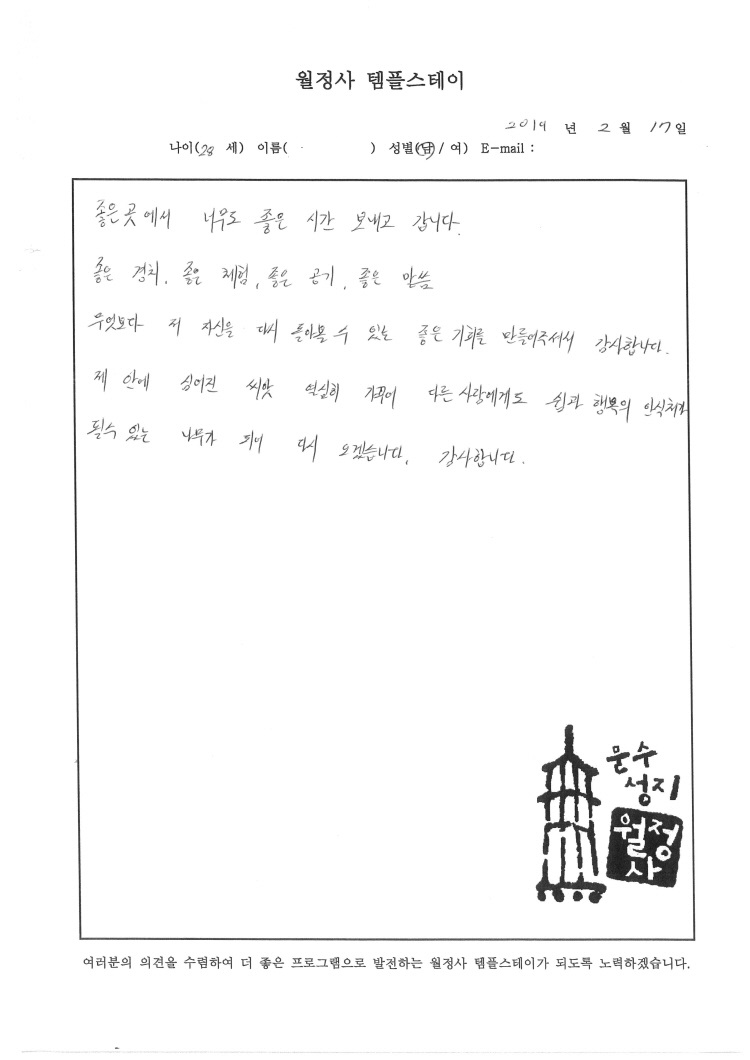 월정사 템플스테이
2019 년 2 월 17 일
나이(28 세) 이름( ) 성별(남 / 여) E-mail :
좋은 곳에서 너무도 좋은 시간 보내고 갑니다.
좋은 경치, 좋은 체험, 좋은 공기, 좋은 말씀
무엇보다 저 자신을 다시 돌아볼 수 있는 좋은 기회를 만들어주셔서 감사합니다.
제 안에 심어진 씨앗 열심히 가꾸어 다른 사람에게도 쉼과 행복의 안식처가
될수 있는 나무가 되어 다시 오겠습니다. 감사합니다.
문수
성지
월정
사
여러분의 의견을 수렴하여 더 좋은 프로그램으로 발전하는 월정사 템플스테이가 되도록 노력하겠습니다.